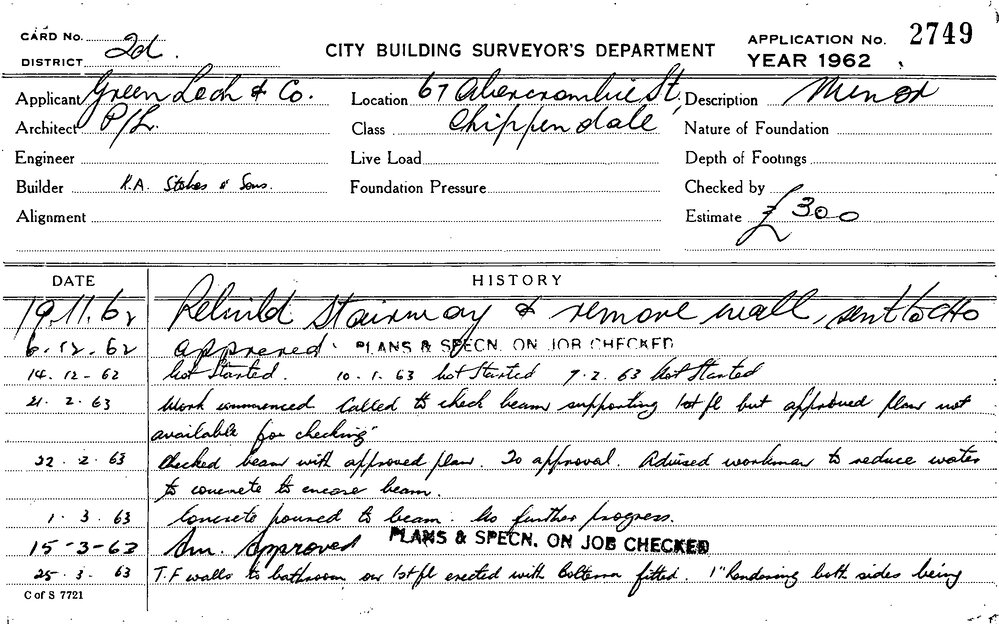 CARD No.
DISTRICT 2d.
CITY BUILDING SURVEYOR'S DEPARTMENT
APPLICATION No. 2749
YEAR 1962
Applicant Green Loch & Co. Location 67 Abercrombie St, Description Minor
Architect P/L. Class Chippendale Nature of Foundation
Engineer Live Load Depth of Footings
Builder R.A. Stokes & Sons. Foundation Pressure Checked by
Alignment Estimate £300
DATE HISTORY
19.11.62 Rebuild Stairway & remove wall, sent to CHO
6.12.62 approved PLANS & SPECN. ON JOB CHECKED
14.12-62 Not Started. 10.1.63 Not Started 7.2.63 Not Started
21.2.63 Work commenced Called to check beam supporting 1st fl but approved plan not
available for checking
22.2.63 Checked beam with approved plan. To approval. Advised workman to reduce water
to concrete to encase beam.
1.3.63 Concrete poured to beam. No further progress.
15-3-63 Am. Approved PLANS & SPECN. ON JOB CHECKED
25.3.63 T.F walls to bathroom on 1st fl erected with fitted. 1" Rendering both sides being
C of S 7721